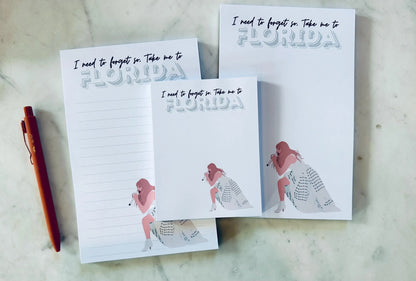 I need to forget so, Take me to
FLORIDA
I need to forget so, Take me to
FLORIDA
I need to forget so, Take me to
FLORIDA